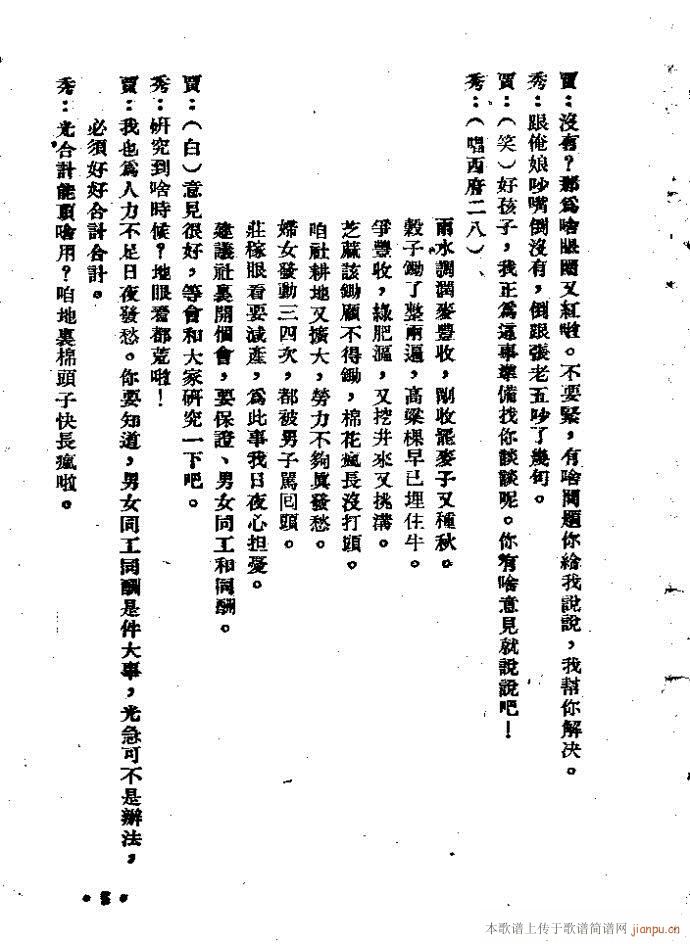 賈：沒有？那爲啥眼圈又紅啦。不要緊，有啥問題你給我說說，我幫你解决。
秀：跟俺娘吵嘴倒沒有，倒跟張老五吵了幾句。
賈：（笑）好孩子，我正爲這事準備找你談談呢。你有啥意見就說說吧！
秀：（唱西府二八）、
雨水調潤麥豐收，剛收罷麥子又種秋。
穀子鋤了整兩遍，高粱棵早已埋住牛。
爭豐收，綠肥漚，又挖井來又挑溝。
芝蔴該鋤顧不得鋤，棉花瘋長沒打頭。
咱社耕地又擴大，勞力不夠眞發愁。
婦女發動三四次，都被男子罵回頭。
莊稼眼看要減產，爲此事我日夜心担憂。
建議社裏開個會，要保證、男女同工和同酬。
賈：（白）意見很好，等會和大家研究一下吧。
秀：研究到啥時候？地眼看都荒啦！
賈：我也爲人力不足日夜發愁。你要知道，男女同工同酬是件大事，光急可不是辦法，
必須好好合計合計。
秀：光合計能頂啥用？咱地裏棉頭子快長瘋啦。
本歌谱上传于歌谱简谱网
jianpu.cn